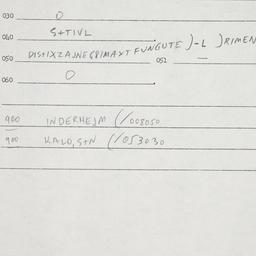 030 0
040 S+TIVL
050 DISTIXZAJNE(BIMAXT FUNGUTE )-L )RIMEN
052 —
060 0
900 INDERHEJM (/008050
900 KALD, S+N (/053030